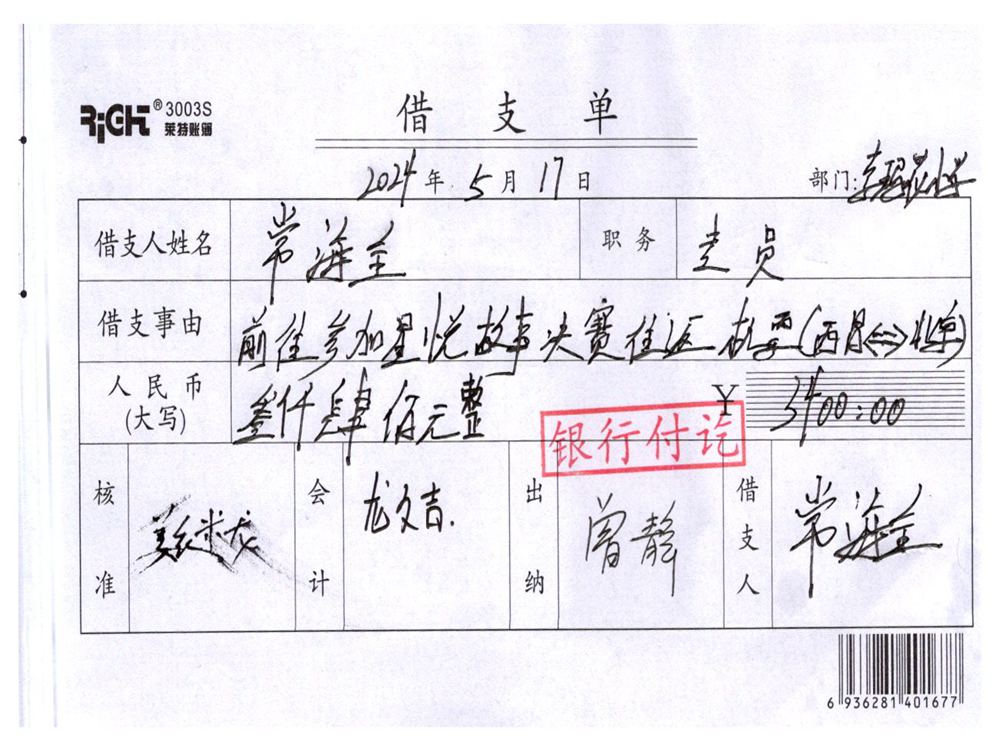 RiGHT® 3003S
莱特账簿
借支单
2024年5月17日
部门:
借支人姓名 常海全 职务 走员
借支事由 前往参加星悦故事决赛往返机票(西昌<=>北京)
人民币(大写) 叁仟肆佰元整 ¥ 3400:00
银行付讫
核准 会计 龙文吉. 出纳 曾静 借支人 常海全
6 936281 401677